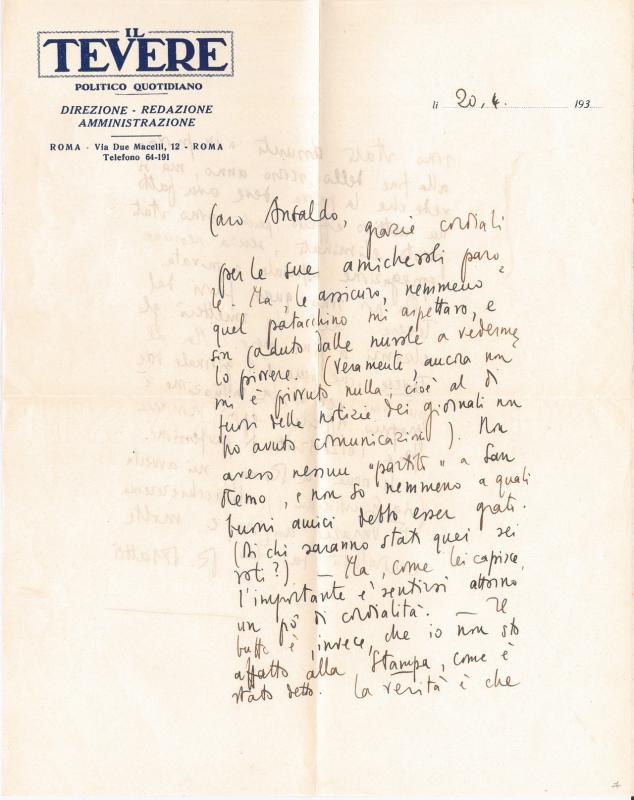 IL
TEVERE
POLITICO QUOTIDIANO
DIREZIONE - REDAZIONE
AMMINISTRAZIONE
ROMA - Via Due Macelli, 12 - ROMA
Telefono 64-191
li 20, 4. 193
Caro Ansaldo, grazie cordiali
per le sue amichevoli paro
le. Ma, le assicuro, nemmeno
quel patacchino mi aspettavo, e
son caduto dalle nuvole a vederme
lo piovere. (Veramente, ancora non
mi è piovuto nulla, cioè al di
fuori delle notizie dei giornali non
ho avuto comunicazioni). Non
avevo nessun "partito" a San
Remo, e non so nemmeno a quali
buoni amici debbo esser grato.
(Di chi saranno stati quei sei
voti?) — Ma, come lei capisce,
l'importante è sentirsi attorno
un pò di cordialità. — Il
brutto è, invece, che io non sto
affatto alla Stampa, come è
stato detto. La verità è che